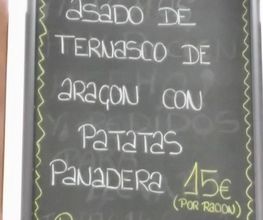 ASADO DE
TERNASCO DE
ARAGON CON
PATATAS
PANADERA 15€
(POR RACION)